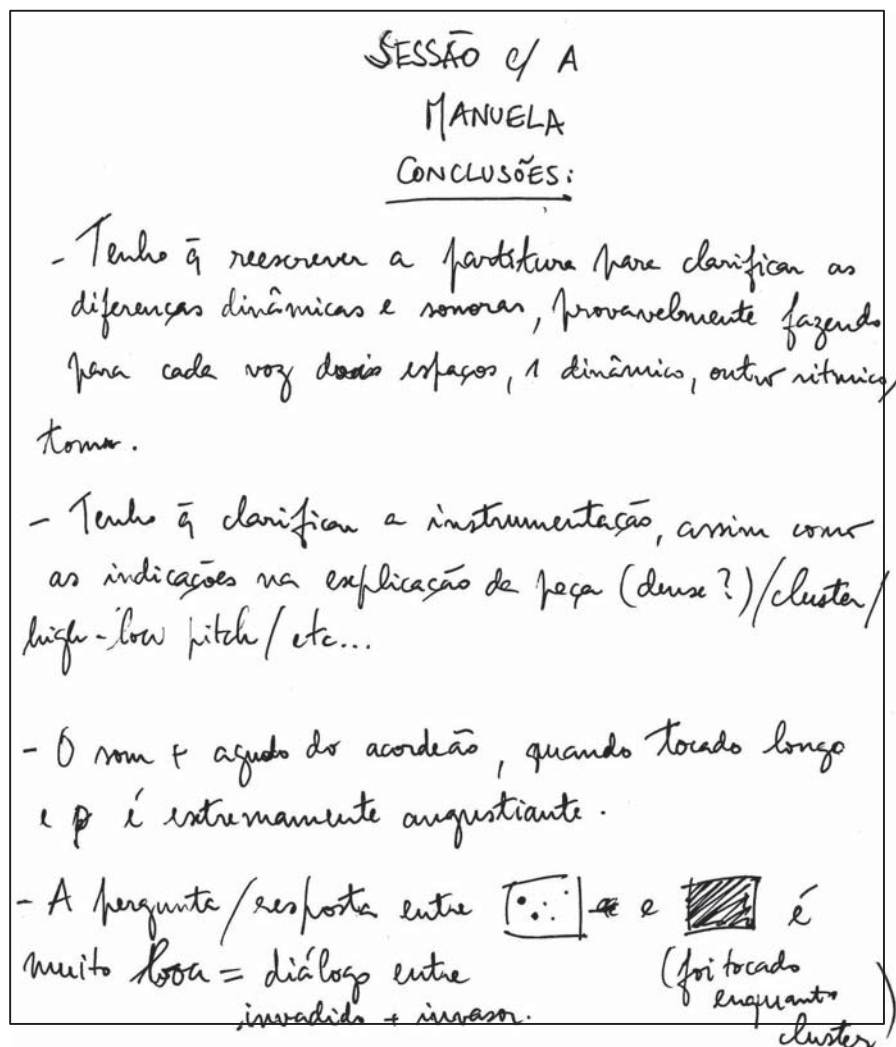 SESSÃO c/ A
MANUELA
CONCLUSÕES:
- Tenho q̄ reescrever a partitura para clarificar as
diferenças dinâmicas e sonoras, provavelmente fazendo
para cada voz dois espaços, 1 dinâmico, outro rítmico/
- Tenho q̄ clarificar a instrumentação, assim como
as indicações na explicação da peça (dense?)/cluster/
high-low pitch/etc...
- O som + agudo do acordeão, quando tocado longo
e p é extremamente angustiante.
- A pergunta/resposta entre e é
muito boa = diálogo entre (foi tocado
invadido + invasor. enquanto
cluster)